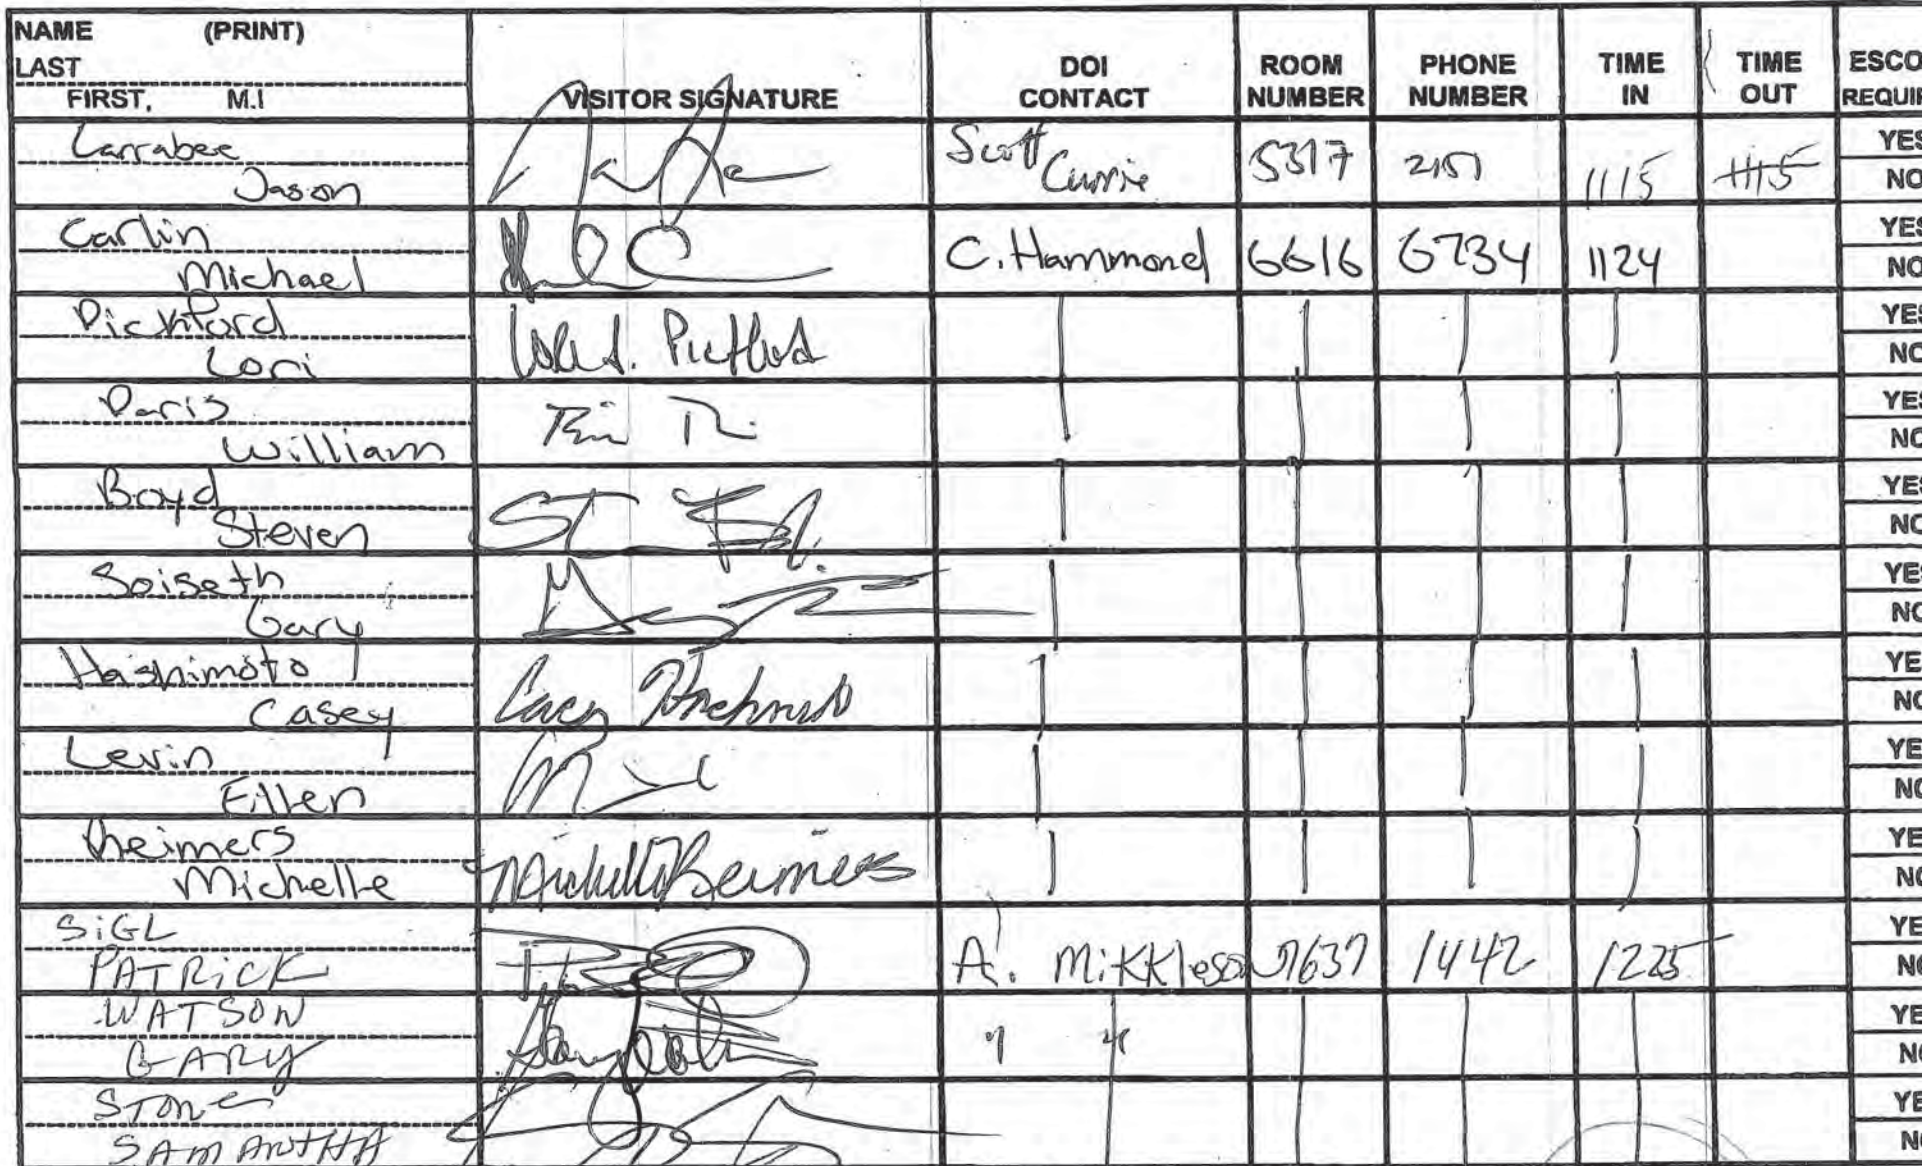 NAME (PRINT)
LAST
FIRST, M.I
VISITOR SIGNATURE
DOI CONTACT
ROOM NUMBER
PHONE NUMBER
TIME IN
TIME OUT
ESCO
REQUIR
Larrabee
Jason
Scott Currie 5317 2151 1115 1115
YES
NO
Carlin
Michael
C. Hammond 6616 6734 1124
YES
NO
Pickford
Lori
YES
NO
Davis
William
YES
NO
Boyd
Steven
YES
NO
Soiseth
Gary
YES
NO
Hashimoto
Casey
Casey Hashimoto
YE
NO
Levin
Ellen
YE
NO
Reimers
Michelle
Michelle Reimers
YE
NO
SiGL
PATRICK
A. Mikkleson 7637 1442 1225
YE
NO
WATSON
GARY
YE
NO
STONE
SAMANTHA
YE
NO